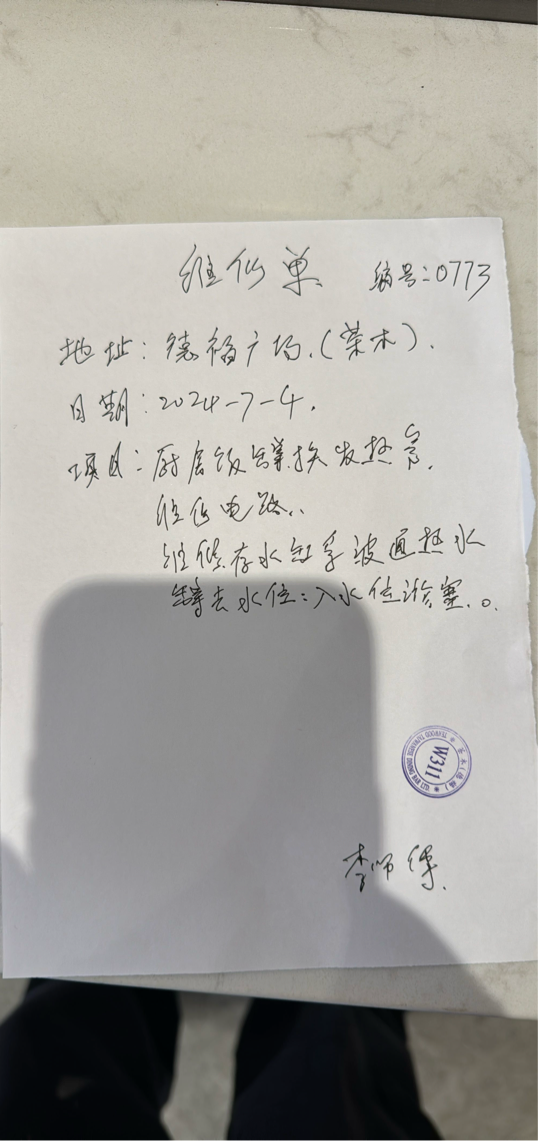 维修单 编号:0773
地址:德福广场.(茶木).
日期:2024-7-4.
项目:厨房饭罉换发热管.
维修电路..
维修存水缸手波通热水
罉去水位:入水位淤塞.。
W311
李师傅.